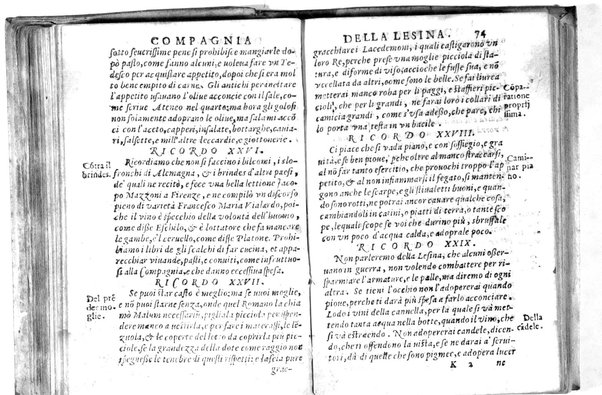 COMPAGNIA
sotto seuerissime pene si prohibisce mangiarle do-
pò pasto, come fanno alcuni, e uoleua fare vn Te-
desco per acquistare appetito, dopoi che si era mol
to bene empito di carne. Gli antichi per anettare
l'appetito usauano l'oliue acconcie con il sale, co-
me scriue Ateneo nel quarto; ma bora gli golosi
non solamente adoprano le oliue, ma salumi accõ
ci con l'aceto, capperi, insalate, bottarghe, cauia-
ri, salsette, e mill'altre leccardie, e giottonerie.
RICORDO XXVI.
Cõtra il
brindes.
Ricordiamo che non si faccino i bilcomi, i slo-
franchi di Alemagna, & i brindes d'altri paesi,
de' quali ne recitò, e fece vna bella lettione Iaco-
po Mazzoni a Firenze, e ne compilò vn discorso
pieno di varietà Francesco Maria Vialardo, poi-
che il vino è specchio della volontà dell'huomo,
come disse Eschilo, & è torrente che fà mancare
le gambe, & il ceruello, come disse Platone. Prohi-
biamo i libri de gli scalchi di far cucina, et appa-
recchiar viuande, pasti, e conuiti, come infruttuo
si alla Compagnia, e che danno eccessiua spesa.
RICORDO XXVII.
Del prē
der mo-
glie.
Se puoi star casto è meglio; ma se vuoi moglie,
e nõ puoi starne senza, onde nel Romano la chia
mò Malum necessariũ, pigliala picciola per ispen
dere manco a uestirla, e per fare i materassi, le lē
zuola, & le coperte del letto da coprirla più pic-
ciole, se la grandezza della dote come raggio non
ispegnesse le tenebre di questi rispetti: e lascia pure
grac-
DELLA LESINA. 74
gracchiare i Lacedemoni, i quali castigarono vn
loro Re, perche prese vna moglie picciola di sta-
tura, e diforme di viso, accioche le fusse sua, e nõ
vccellata da altri, come sono le belle. Se fai liurea
metterai manco roba per li paggi, e staffieri pic-
cioli, che per li grandi, ne farai loro i collari di
camicia grandi, come s'vsa adesso, che pare, che
lo porta vna testa in vn bacile.
Cõpa-
ratione
propris
sima.
RICORDO XXVIII.
Ci piace che si vada piano, e con sussiego, e gra
uità, e se ben pione, pche oltre al manco straccarsi,
al nõ far tanto esercitio, che prouochi troppo l'ap
petito, & al non infiammarsi il fegato, si manten-
gono anche le scarpe, e gli stiualetti buoni, e quan-
do son rotti, ne potrai ancor cauare qualche cosa,
cambiandoli in catini, o piatti di terra, o tante sco
pe, le quale scope se voi che durino più, sbruffale
con vn poco d'acqua calda, e adoprale poco.
Cami-
nar pia
no.
RICORDO XXIX.
Non parleremo della Lesina, che alcuni osser-
uauo in guerra, non volendo combattere per ri-
sparmiare l'armature, e le palle, ma diremo di ogni
altra. Se tieni l'occhio non l'adopererai quando
pioue, perche ti darà più spesa a farlo acconciare.
Lodo i vini della cannella, per la quale si và met-
tendo tanta acqua nella botte, quanto il vino, che
si và estraendo. Non adopererai candele, dicen-
do che ti offendono la uista, e se ne darai a' serui-
tori, dà di quelle che son pigmee, e adopera lucer
Della
cādele.
K 2 ne